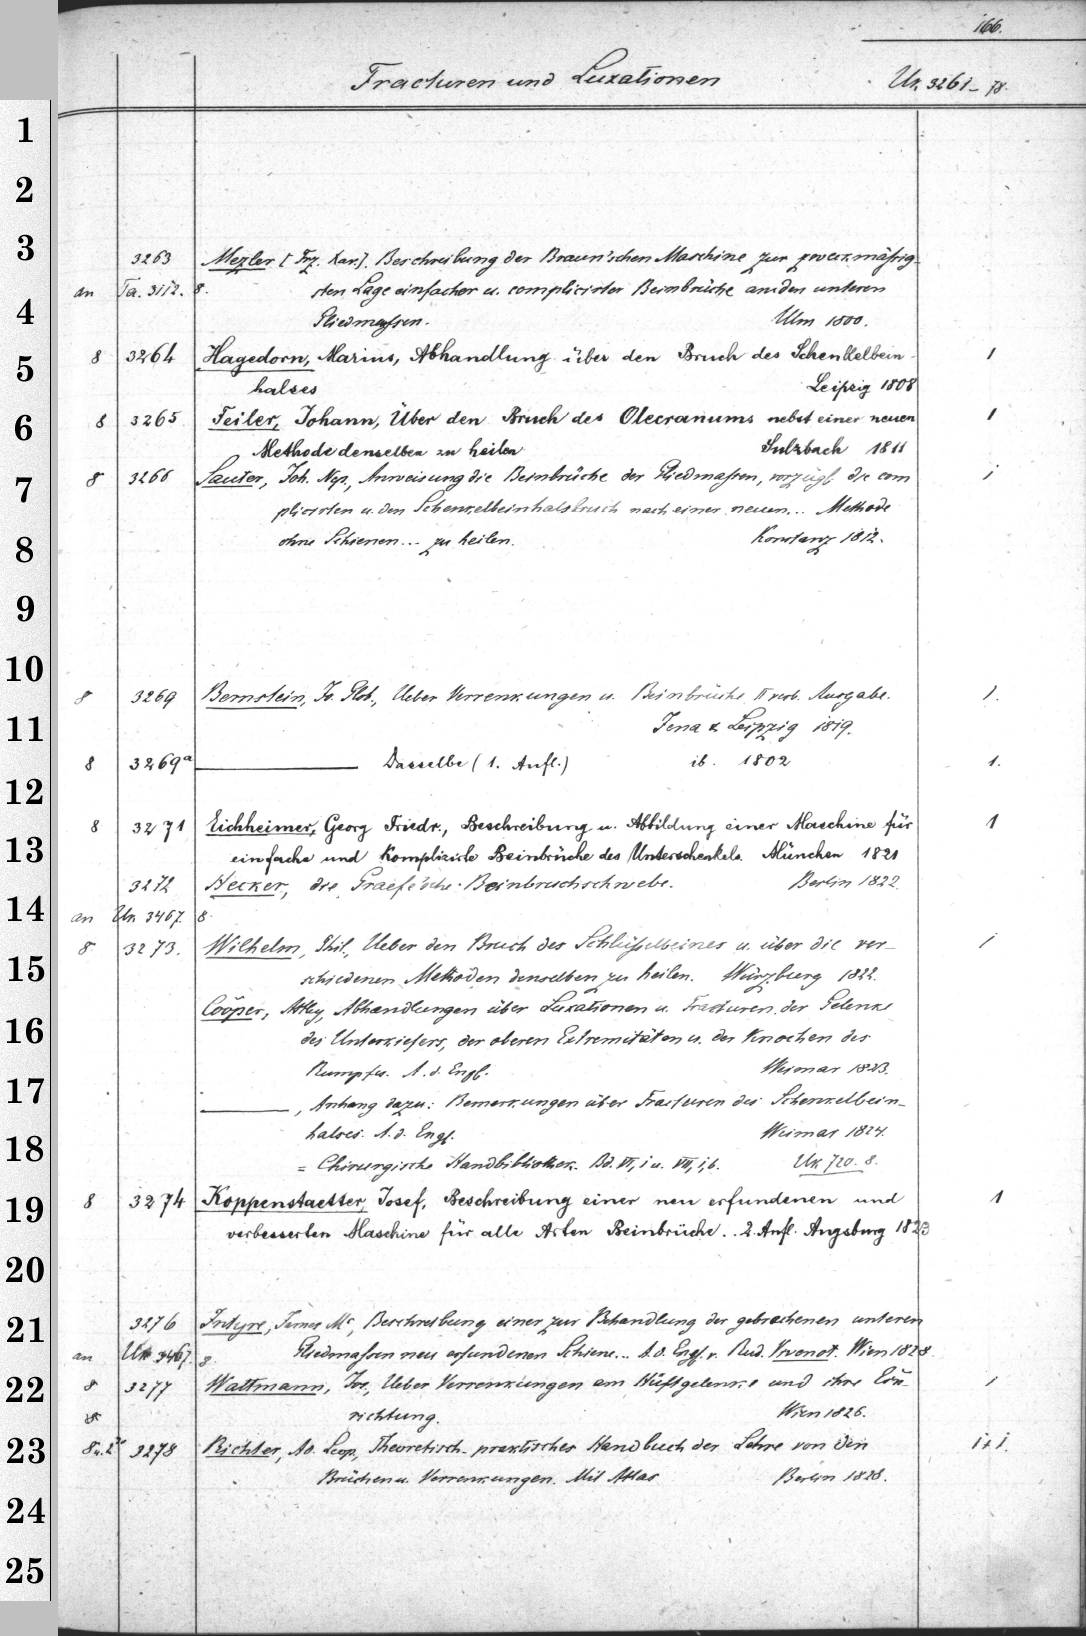 166.
Fracturen und Luxationen Uk. 3261-78.
1
2
3
4
5
6
7
8
9
10
11
12
13
14
15
16
17
18
19
20
21
22
23
24
25
3263 Mezler [Frz. Xav.]. Beschreibung der Braun'schen Maschine zur zweckmäßig-
an Ta. 3112. 8. sten Lage einfacher u. complicirter Beinbrüche an den unteren
Gliedmaßen. Ulm 1800.
8 3264 Hagedorn, Marius, Abhandlung über den Bruch des Schenkelbein- 1
halses Leipzig 1808
8 3265 Feiler, Johann, Über den Bruch des Olecranums nebst einer neuen 1
Methode denselben zu heilen Sulzbach 1811
8 3266 Sauter, Joh. Nep., Anweisung die Beinbrüche der Gliedmaßen, vorzügl. die com 1
plicirten u. den Schenkelbeinhalsbruch nach einer neuen... Methode
ohne Schienen... zu heilen. Konstanz 1812.
8 3269 Bernstein, Jo. Glob., Ueber Verrenkungen u. Beinbrüche II verb. Ausgabe. 1.
Jena & Leipzig 1819.
8 3269a ——— Dasselbe (1. Aufl.) ib. 1802 1.
8 3271 Eichheimer, Georg Friedr., Beschreibung u. Abbildung einer Maschine für 1
einfache und Komplizirte Beinbrüche des Unterschenkels. München 1821
3272 Hecker, die Graefe'sche Beinbruchschwebe. Berlin 1822.
an Uk 3467. 8.
8 3273. Wilhelm, Phil., Ueber den Bruch des Schlüßelbeines u. über die ver- 1
schiedenen Methoden denselben zu heilen. Würzburg 1822.
Cooper, Astley, Abhandlungen über Luxationen u. Fracturen der Gelenke
des Unterkiefers, der oberen Extremitäten u. der Knochen des
Rumpfes. A. d. Engl. Weimar 1823.
———, Anhang dazu: Bemerkungen über Fracturen des Schenkelbein-
halses. A. d. Engl. Weimar 1824.
= Chirurgische Handbibliothek. Bd. VI, 1 u. VII, 1, b. Uk. 720. 8.
8 3274 Koppenstaetter, Josef, Beschreibung einer neu erfundenen und 1
verbesserten Maschine für alle Arten Beinbrüche.. 2. Aufl. Augsburg 1823
3276 Intyre, James Mc, Beschreibung einer zur Behandlung der gebrochenen unteren
an Uk 3467. 8. Gliedmaßen neu erfundenen Schiene... A. d. Engl. v. Rud. Vivenot. Wien 1828.
8 3277 Wattmann, Jos., Ueber Verrenkungen am Hüftgelenke und ihre Ein- 1
8 richtung. Wien 1826.
8 u. 2° 3278 Richter, Ad. Leop., Theoretisch-praktisches Handbuch der Lehre von den 1+1.
Brüchen u. Verrenkungen. Mit Atlas Berlin 1828.